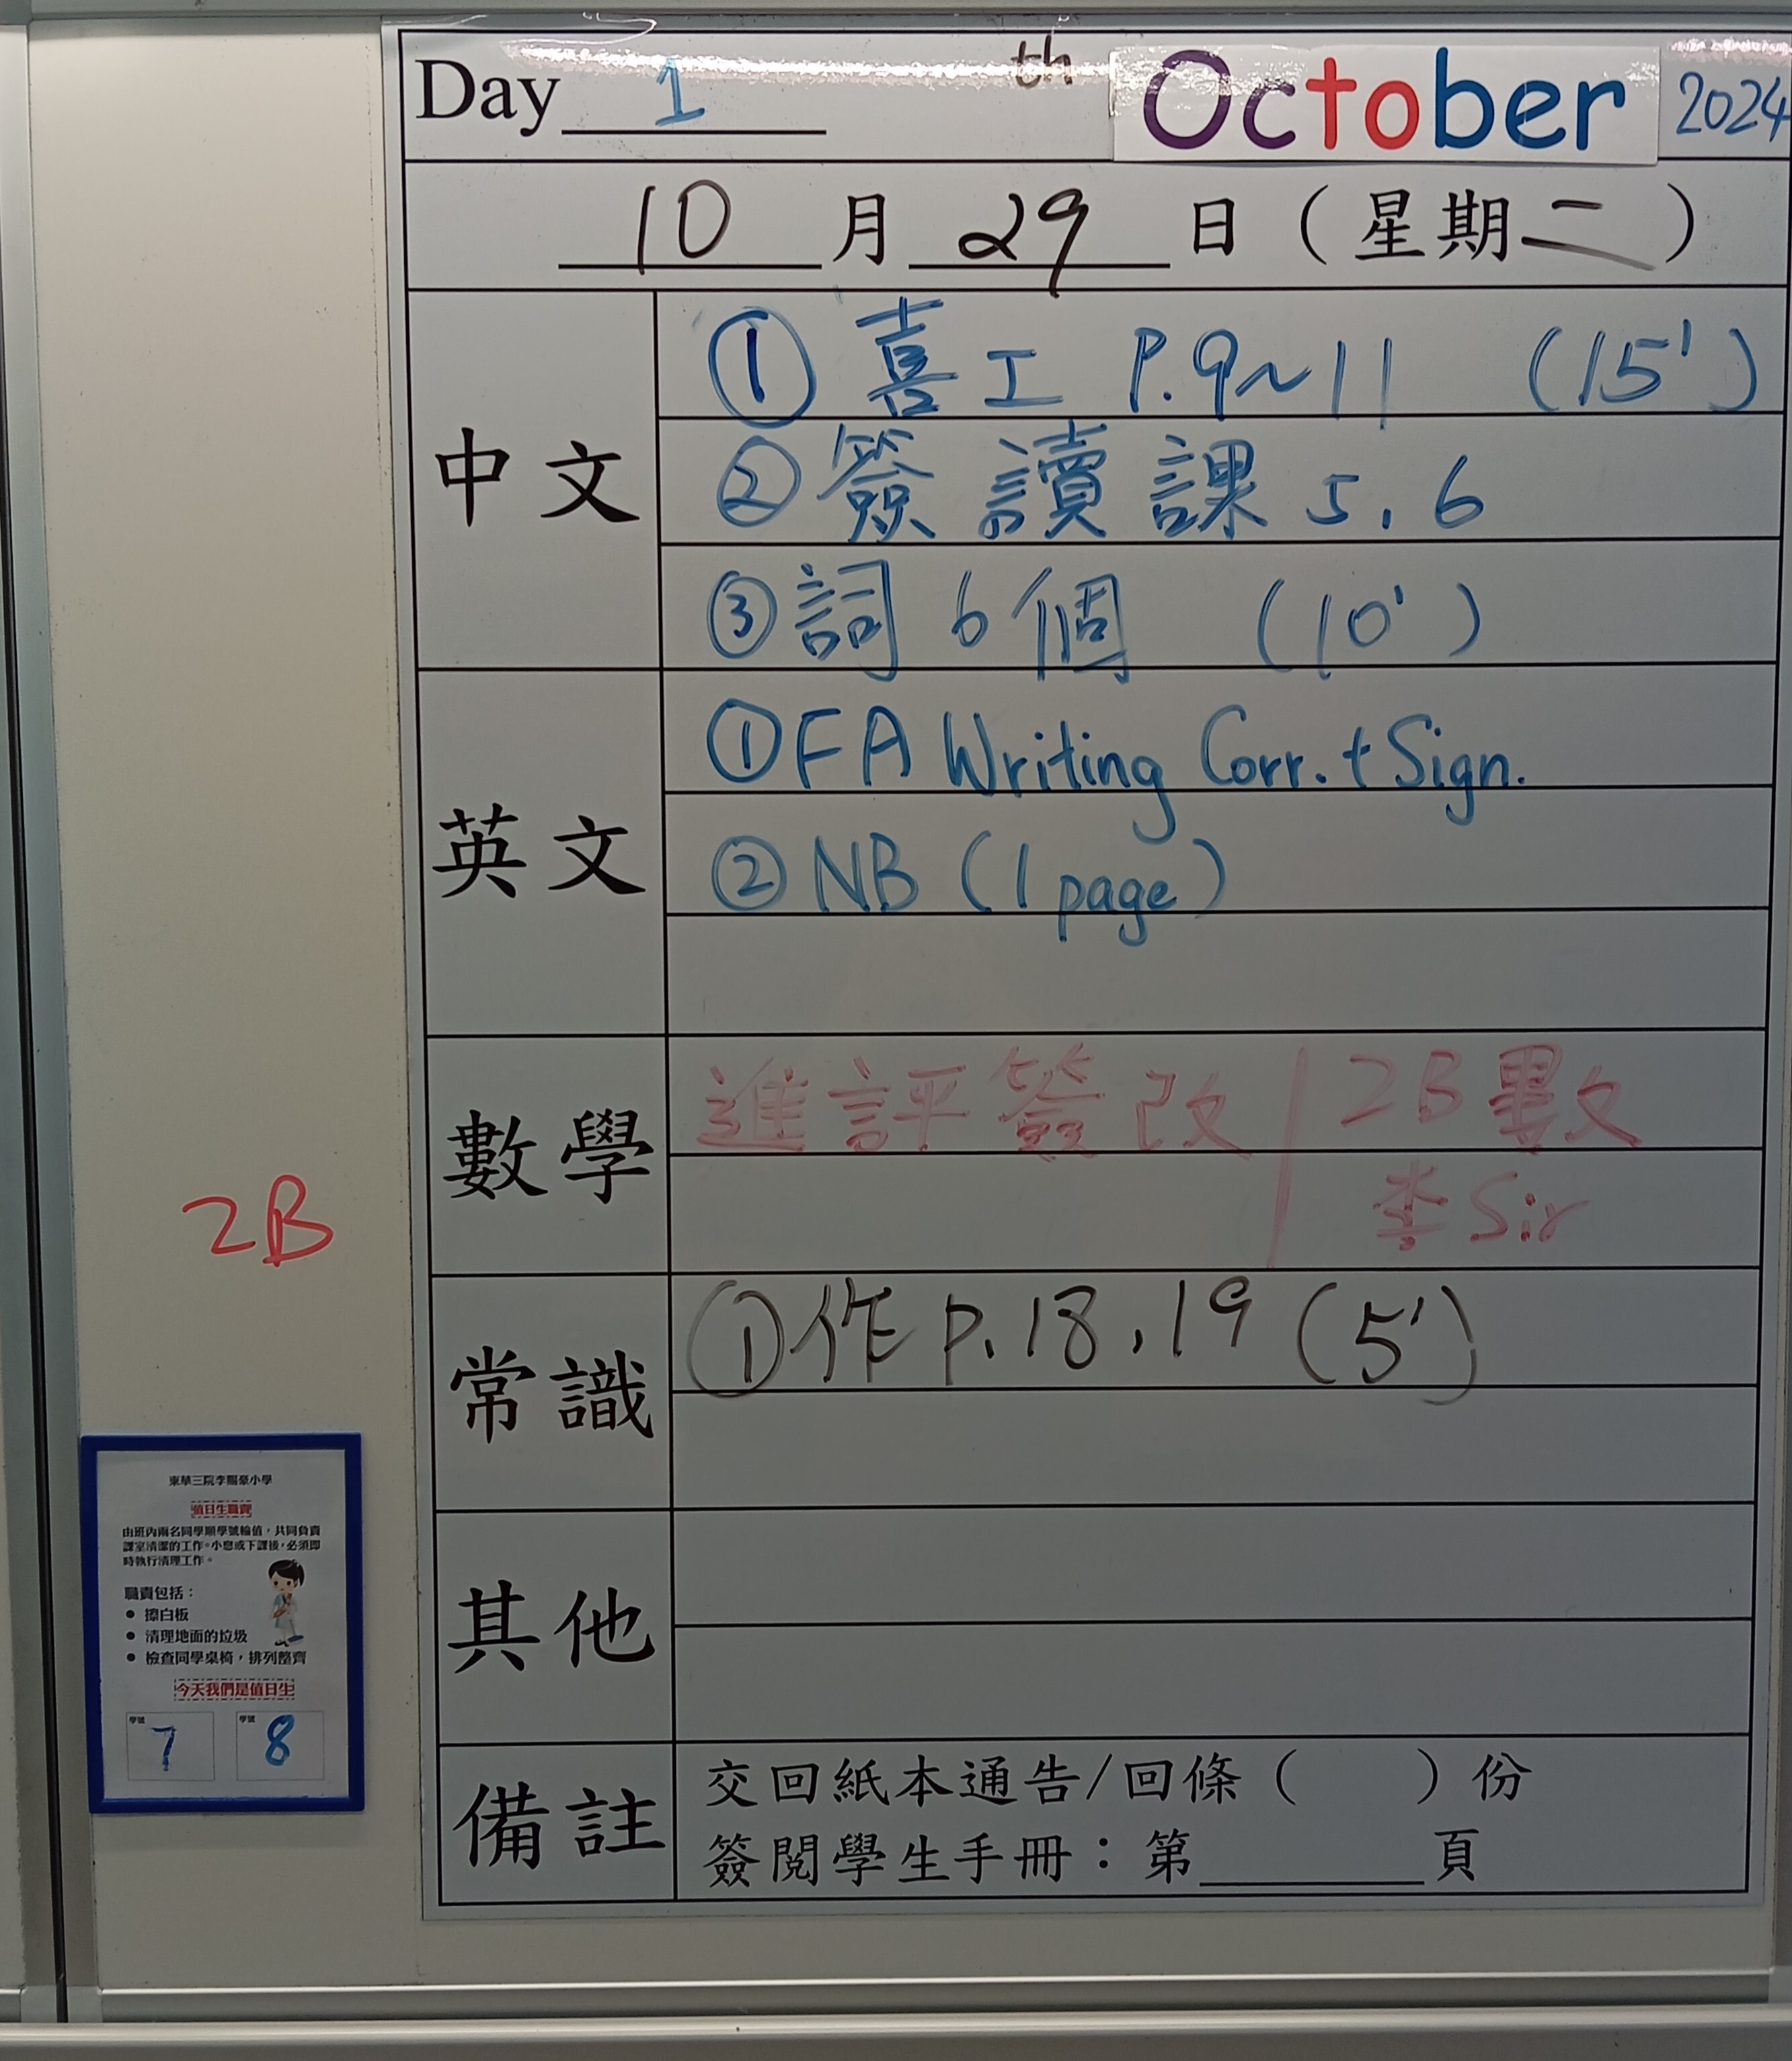 Day 1 th October 2024
10 月 29 日 (星期二)
中文
① 喜工 P.9~11 (15')
② 簽讀課 5, 6
③ 詞 6 個 (10')
英文
① FA Writing Corr. + Sign.
② NB (1 page)
數學
進評簽改 | 2B 數
李 Sir
2B
常識
① 作 P.18, 19 (5')
其他
備註
交回紙本通告/回條( )份
簽閱學生手冊：第______頁
東華三院李賜豪小學
值日生職責
由班內兩名同學順學號輪值，共同負責
課室清潔的工作。小息或下課後，必須即
時執行清理工作。
職責包括：
● 擦白板
● 清理地面的垃圾
● 檢查同學桌椅，排列整齊
今天我們是值日生
學號 7 學號 8